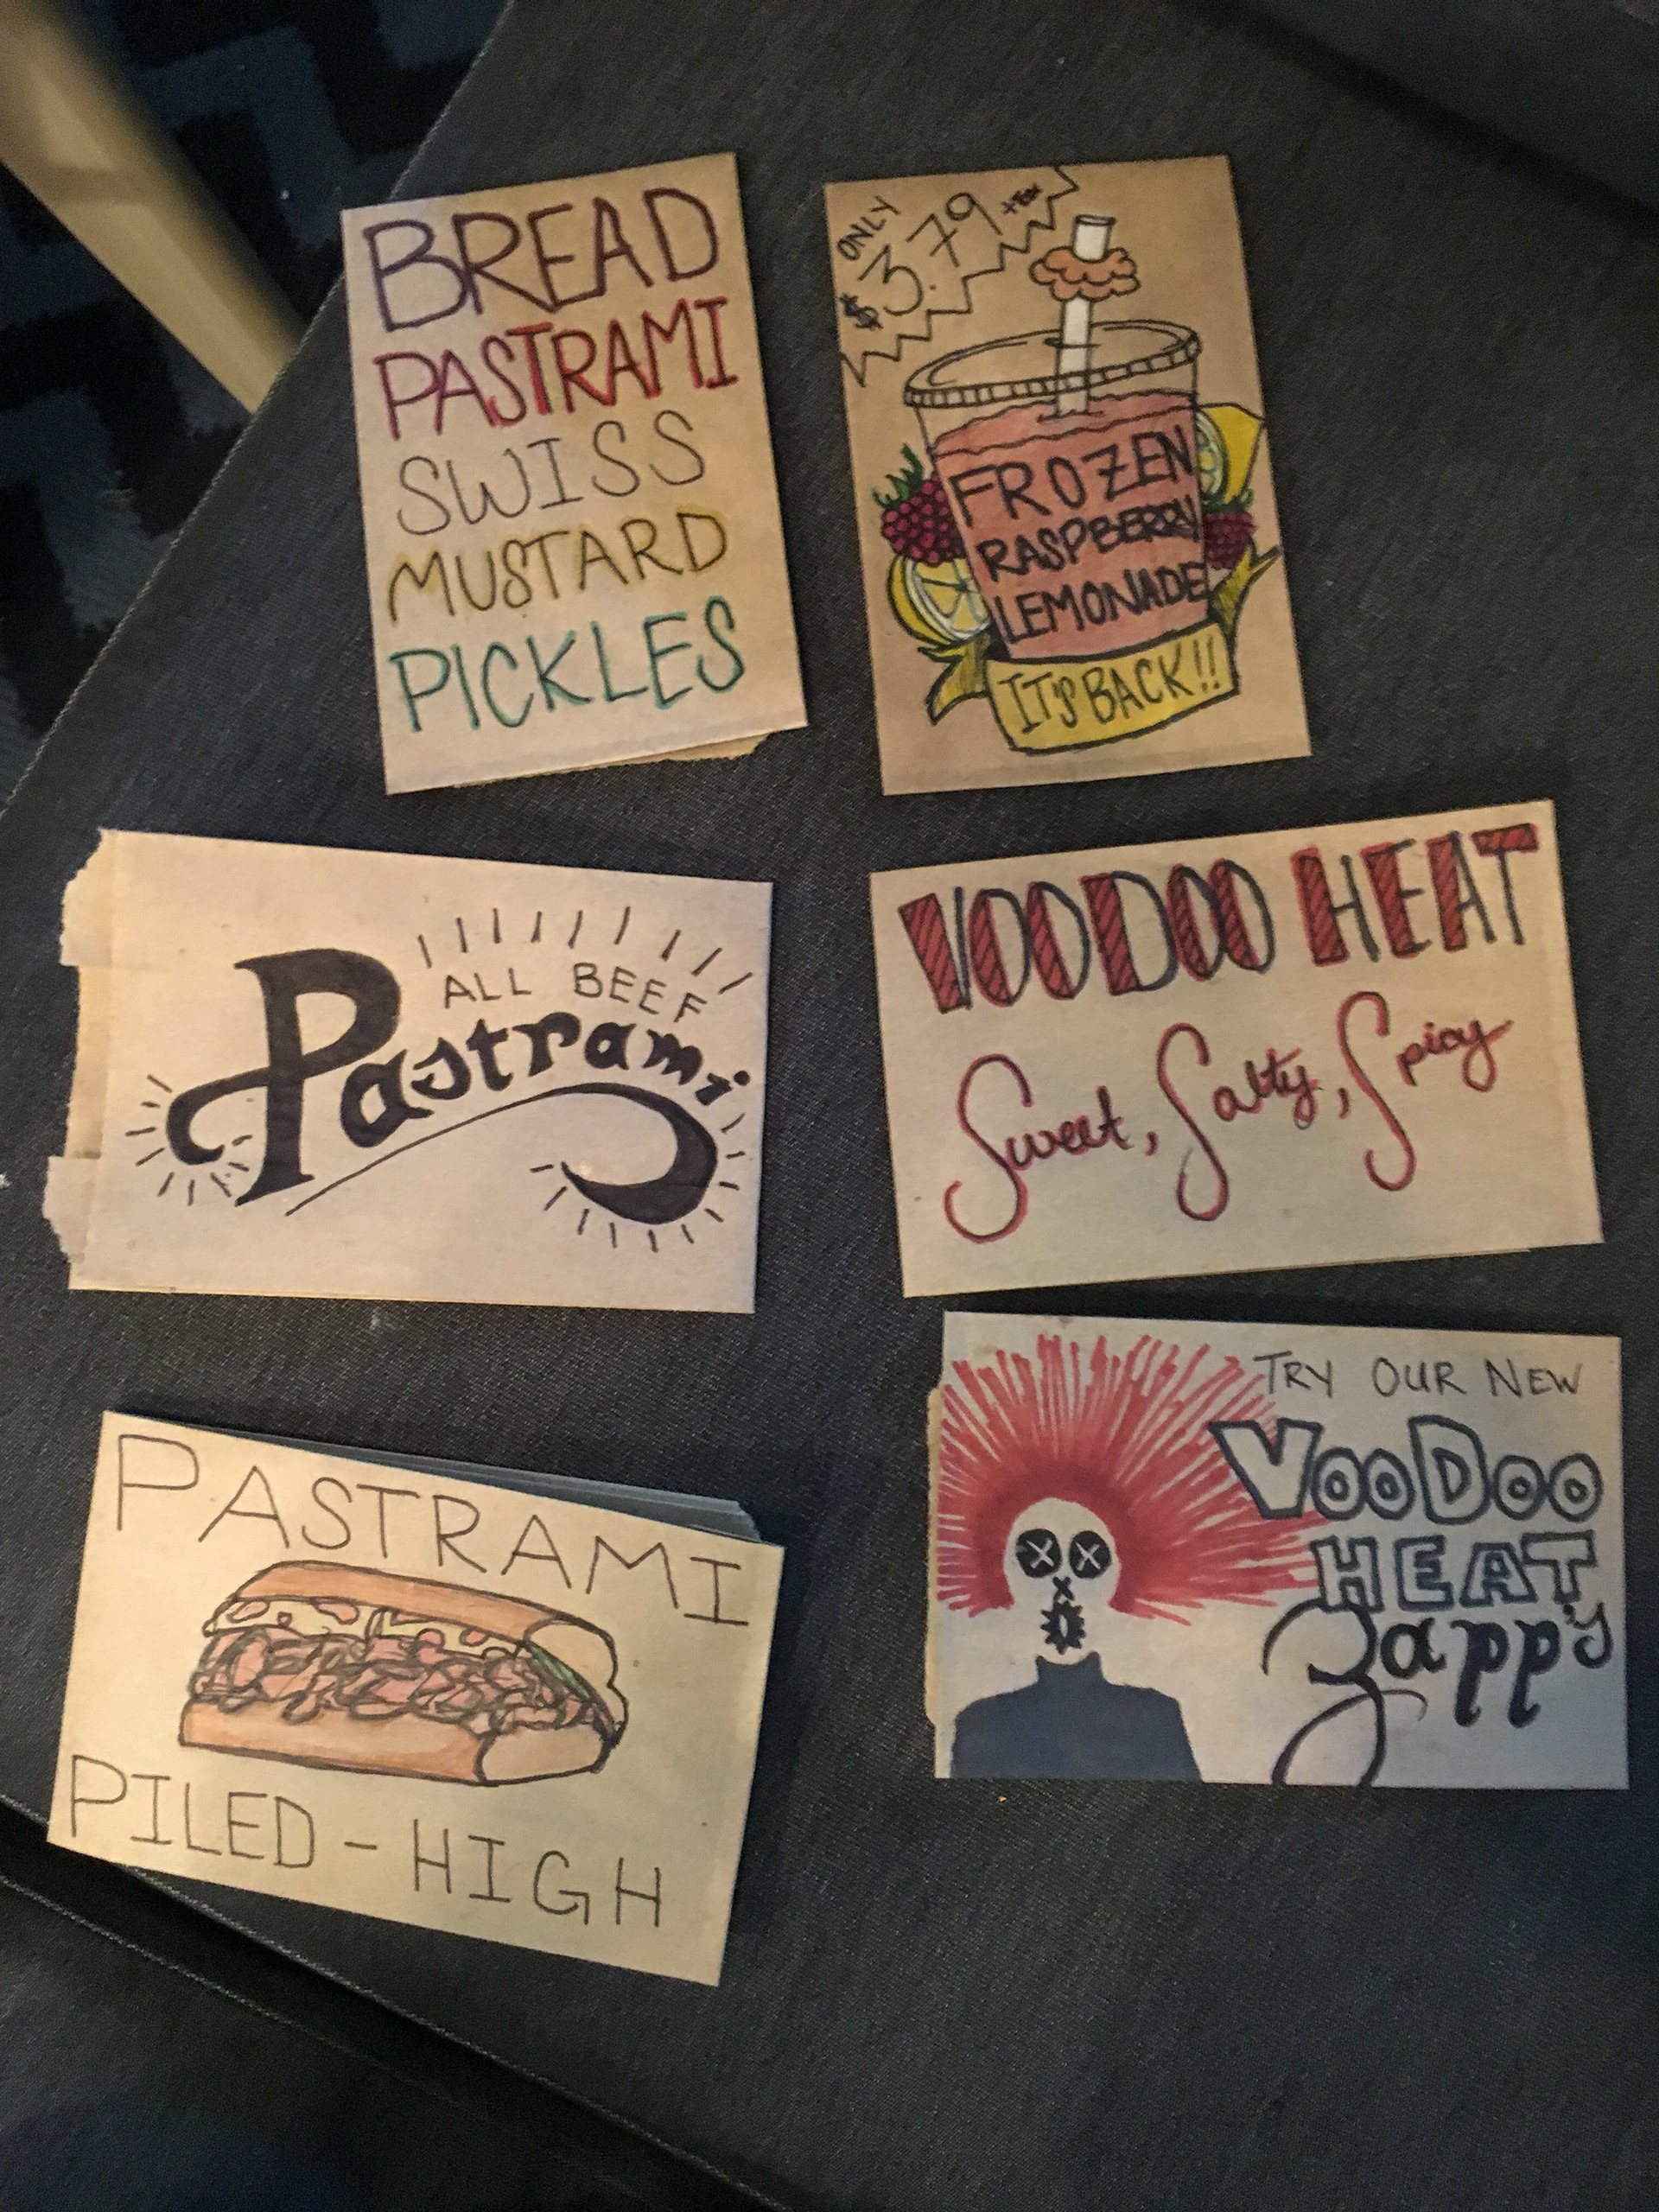 BREAD
PASTRAMI
SWISS
MUSTARD
PICKLES
ONLY
$3.79 +tax
FROZEN
RASPBERRY
LEMONADE
IT'S BACK!!
ALL BEEF
Pastrami
VOODOO HEAT
Sweet, Salty, Spicy
PASTRAMI
PILED-HIGH
TRY OUR NEW
VOODOO
HEAT
Zapp's